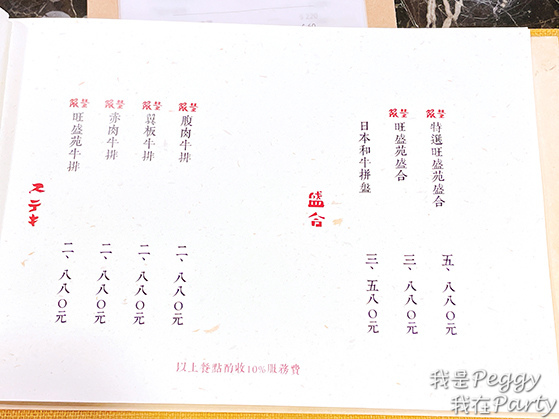 盛合
嚴選 特選旺盛苑盛合 五、八八〇元
嚴選 旺盛苑盛合 三、八八〇元
日本和牛拼盤 三、五八〇元
ステキ
嚴選 腹肉牛排 二、八八〇元
嚴選 翼板牛排 二、八八〇元
嚴選 赤肉牛排 二、八八〇元
嚴選 旺盛苑牛排 二、八八〇元
以上餐點酌收10%服務費
我是Peggy
我在Party